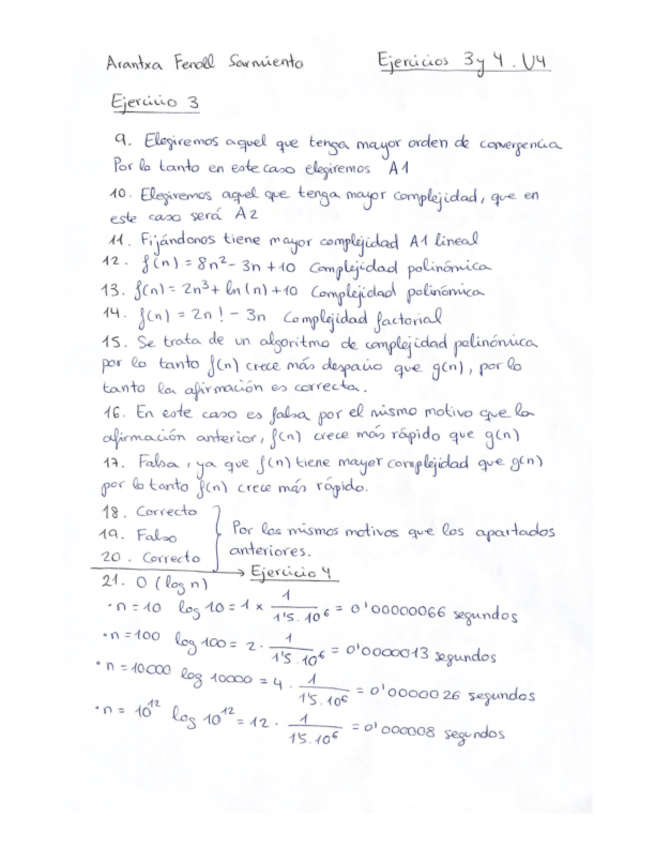 Arantxa Fenoll Sarmiento Ejercicios 3 y 4. U4
Ejercicio 3
9. Elegiremos aquel que tenga mayor orden de convergencia
Por lo tanto en este caso elegiremos A1
10. Elegiremos aquel que tenga mayor complejidad, que en
este caso será A2
11. Fijándonos tiene mayor complejidad A1 lineal
12. f(n) = 8n² - 3n + 10 Complejidad polinómica
13. f(n) = 2n³ + ln(n) + 10 Complejidad polinómica
14. f(n) = 2n! - 3n Complejidad factorial
15. Se trata de un algoritmo de complejidad polinómica
por lo tanto f(n) crece más despacio que g(n), por lo
tanto la afirmación es correcta.
16. En este caso es falsa por el mismo motivo que la
afirmación anterior, f(n) crece más rápido que g(n)
17. Falsa, ya que f(n) tiene mayor complejidad que g(n)
por lo tanto f(n) crece más rápido.
18. Correcto
19. Falso
20. Correcto
} Por los mismos motivos que los apartados
anteriores.
→ Ejercicio 4
21. O (log n)
· n = 10 log 10 = 1 × 1/1'5 · 10⁶ = 0'00000066 segundos
· n = 100 log 100 = 2 · 1/1'5 · 10⁶ = 0'0000013 segundos
· n = 10000 log 10000 = 4 · 1/1'5 · 10⁶ = 0'0000026 segundos
· n = 10¹² log 10¹² = 12 · 1/1'5 · 10⁶ = 0'000008 segundos